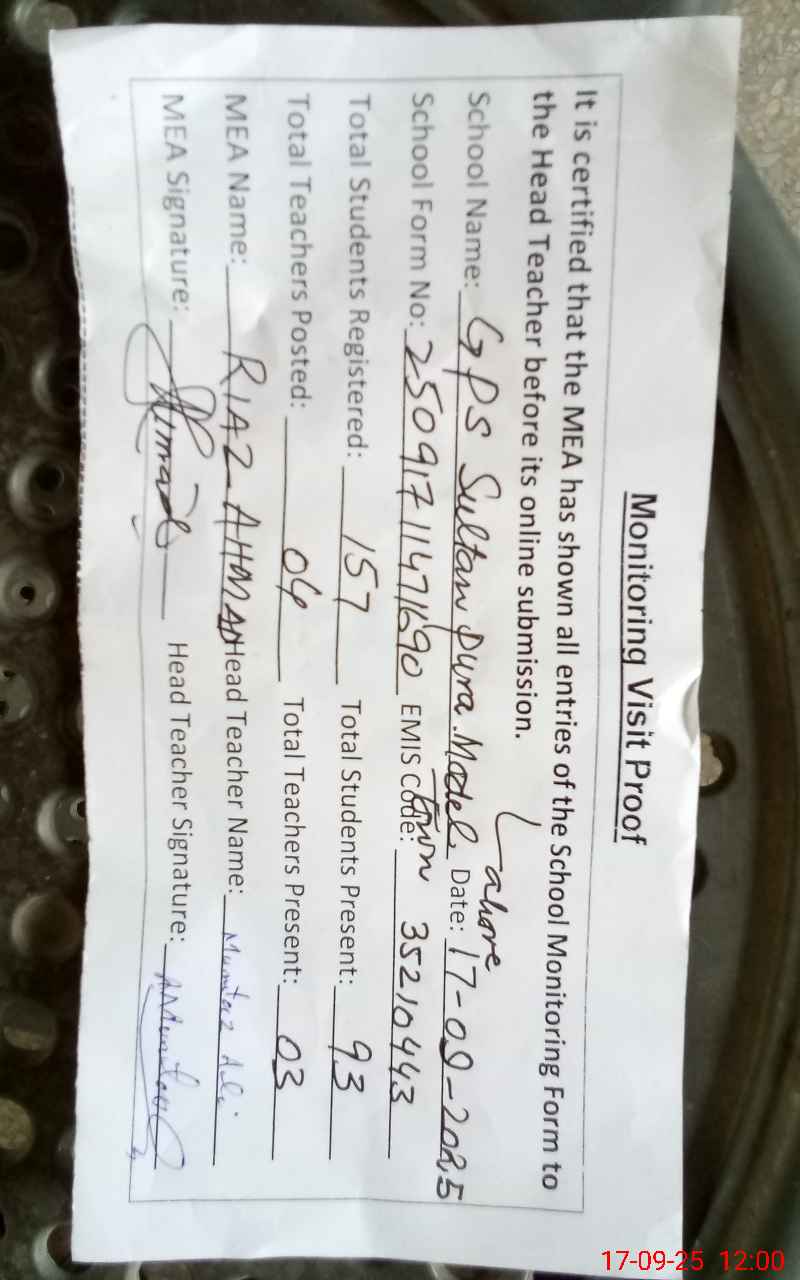 Monitoring Visit Proof
It is certified that the MEA has shown all entries of the School Monitoring Form to
the Head Teacher before its online submission.
School Name: GPS Sultan Pura Model Town Lahore Date: 17-09-2025
School Form No: 2509171147169​0 EMIS Code: 35210443
Total Students Registered: 157 Total Students Present: 93
Total Teachers Posted: 04 Total Teachers Present: 03
MEA Name: RIAZ AHMAD Head Teacher Name: Mumtaz Ali
MEA Signature: Head Teacher Signature:
17-09-25 12:00